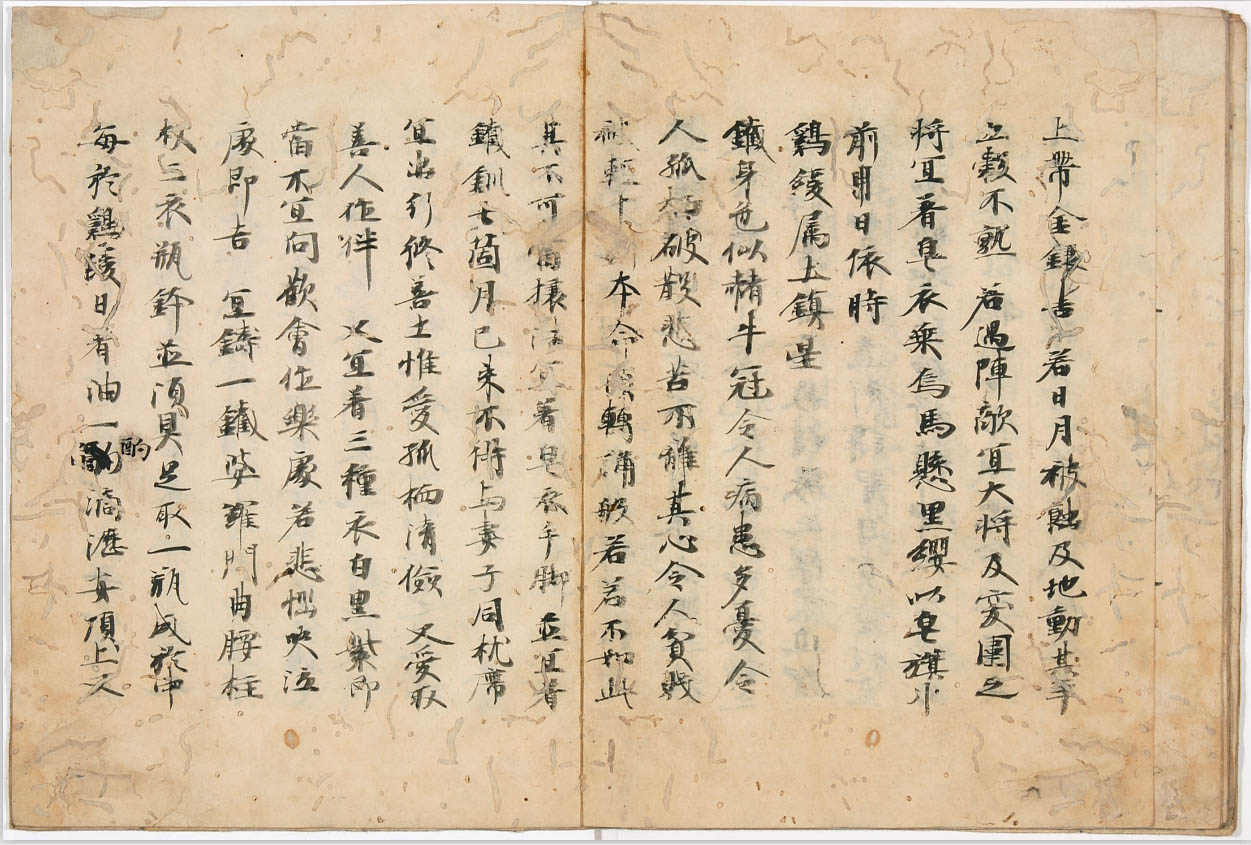 上帶金銀吉若日月被蝕及地動其年
五穀不熟 若遇陣敵宜大將及突圍之
將宜著皂衣乘烏馬懸黑纓以皂旗小
前用日依時
鷄緩屬土鎮星
鐵身色似犗牛冠令人病患多憂令
人孤栖破散悲苦不離其心令人貧賤
被輕 本命 轉誦般若若不如此
其不可 宜著皂衣手脚並宜著
鐵釧七箇月已來不得与妻子同枕席
宜出引修善士惟愛孤栖清儉 又愛取
善人作伴 又宜著三種衣白黑紫即
當不宜向歡會作樂處若悲 哭泣
處即吉 宜鑄一鐵婆羅門曲腰柱
杖三衣瓶鉢並須具足取一瓶成於中
每於鷄緩日着油一酌滴瀝安頂上又